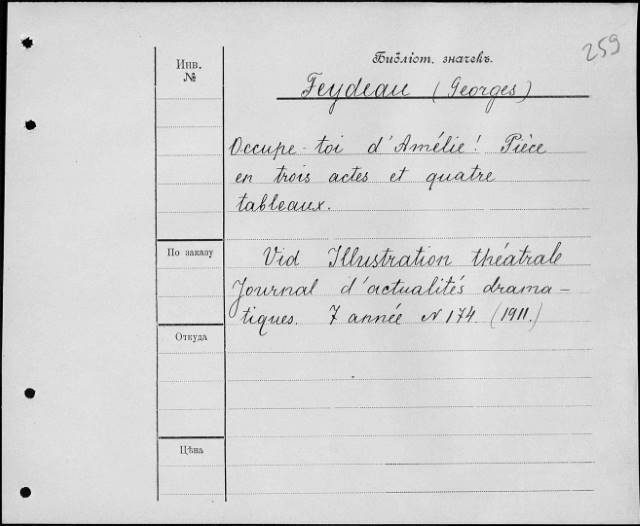 259
Инв.
№
Библіот. значекъ.
Feydeau (Georges)
Occupe-toi d'Amélie! Pièce
en trois actes et quatre
tableaux.
По заказу
Vid Illustration théatrale
Journal d'actualités drama-
tiques. 7 année N 174. (1911.)
Откуда
Цѣна